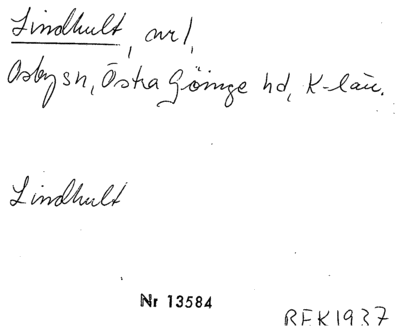 Lindhult, nr 1,
Osby sn, Östra Göinge hd, K-län.
Lindhult
Nr 13584
REK1937